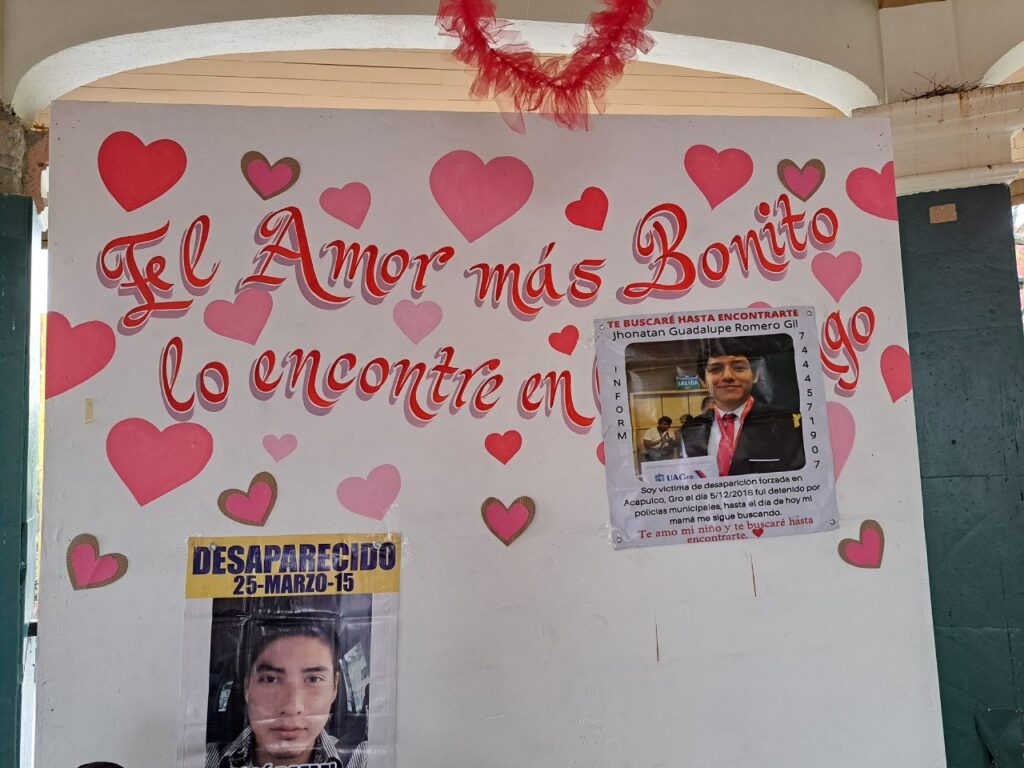 El Amor más Bonito
lo encontre en
TE BUSCARÉ HASTA ENCONTRARTE
Jhonatan Guadalupe Romero Gil
INFORM
SALIDA
744571907
UAGro
Soy victima de desaparición forzada en
Acapulco, Gro el día 5/12/2018 fui detenido por
policías municipales, hasta el día de hoy mi
mamá me sigue buscando.
Te amo mi niño y te buscaré hasta
encontrarte.
DESAPARECIDO
25-MARZO-15